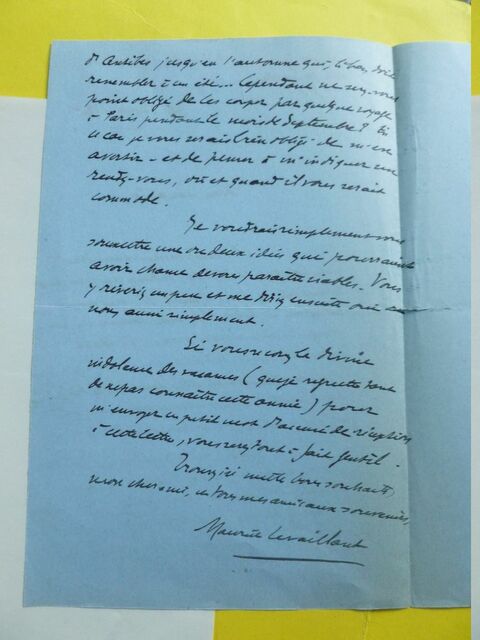 d'Antibes jusqu'en l'automne qui, là-bas, doit
ressembler à un été... Cependant ne serez-vous
point obligé de les couper par quelque voyage
à Paris pendant le mois de Septembre ? En
ce cas je vous serais bien obligé de m'en
avertir - et de penser à m'indiquer un
rendez-vous, où et quand il vous serait
commode.
Je voudrais simplement vous
soumettre une ou deux idées qui pourraient
avoir chance de vous paraître viables. Vous
y rêverez un peu et me direz ensuite oui ou
non, aussi simplement.
Si vous secouez la divine
indolence des vacances (que je regrette tant
de ne pas connaître cette année) pour
m'envoyer un petit mot d'accusé de réception
à cette lettre, vous serez tout à fait gentil.
Trouvez ici mes bons souhaits,
mon cher ami, et tous mes amicaux souvenirs
Maurice Levaillant